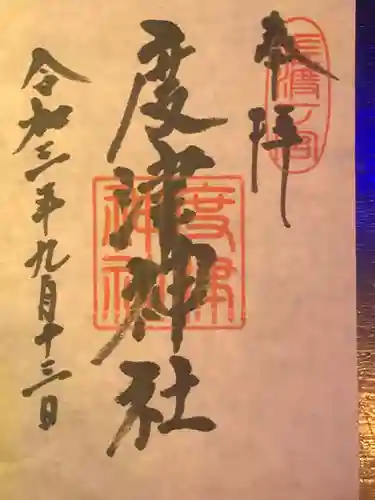 奉拝
佐渡一宮
度津神社
度津
神社
令和三年九月十三日